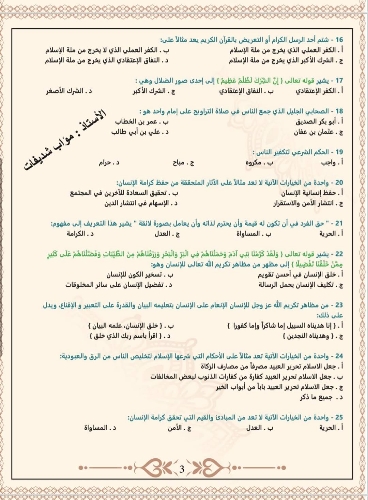 16 - شتم أحد الرسل الكرام أو التعريض بالقرآن الكريم يعد مثالاً على:
أ. الكفر العملي الذي يخرج من ملة الإسلام ب. الكفر العملي الذي لا يخرج من ملة الإسلام
ج. الشرك الأكبر الذي يخرج من ملة الإسلام د. النفاق الاعتقادي الذي يخرج من ملة الإسلام
17 - يشير قوله تعالى ( إِنَّ الشِّرْكَ لَظُلْمٌ عَظِيمٌ ) إلى إحدى صور الضلال وهي :
أ. الكفر الإعتقادي ب. النفاق الإعتقادي ج. الشرك الأكبر د. الشرك الأصغر
18 - الصحابي الجليل الذي جمع الناس في صلاة التراويح على إمام واحد هو :
أ. أبو بكر الصديق ب. عمر بن الخطاب
ج. عثمان بن عفان د. علي بن أبي طالب
الأستاذ : مؤاب شديفات
19 - الحكم الشرعي لتكفير الناس :
أ. واجب ب. مكروه ج. مباح د. حرام
20 - واحدة من الخيارات الآتية لا تعد مثالاً على الآثار المتحققة من حفظ كرامة الإنسان:
أ. حفظ إنسانية الإنسان ب. تحقيق السعادة للآخرين في المجتمع
ج. انتشار الأمن والاستقرار د. الإسهام في انتشار الدين
21 - " حق الفرد في أن تكون له قيمة وأن يحترم لذاته وأن يعامل بصورة لائقة " يشير هذا التعريف إلى مفهوم:
أ. الحرية ب. المساواة ج. العدل د. الكرامة
22 - يشير قوله تعالى ( وَلَقَدْ كَرَّمْنَا بَنِي آدَمَ وَحَمَلْنَاهُمْ فِي الْبَرِّ وَالْبَحْرِ وَرَزَقْنَاهُمْ مِنَ الطَّيِّبَاتِ وَفَضَّلْنَاهُمْ عَلَى كَثِيرٍ
مِمَّنْ خَلَقْنَا تَفْضِيلًا ) إلى مظهر من مظاهر تكريم الله تعالى للإنسان وهو:
أ. خلق الإنسان في أحسن تقويم ب. تسخير الكون للإنسان
ج. تكليف الإنسان بحمل الرسالة د. تفضيل الإنسان على سائر المخلوقات
23 - من مظاهر تكريم الله عز وجل للإنسان الإنعام على الإنسان بتعليمه البيان والقدرة على التعبير و الإقناع، ويدل
على ذلك:
أ. ( إنا هديناه السبيل إما شاكراً وإما كفورا ) ب. ( خلق الإنسان، علمه البيان )
ج. ( وهديناه النجدين ) د. ( اقرأ باسم ربك الذي خلق )
24 - واحدة من الخيارات الآتية تعد مثالاً على الأحكام التي شرعها الإسلام لتخليص الناس من الرق والعبودية:
أ. جعل الاسلام تحرير العبيد مصرفاً من مصارف الزكاة
ب. جعل الاسلام تحرير العبيد كفارة من كفارات الذنوب لبعض المخالفات
ج. جعل الاسلام تحرير العبيد باباً من أبواب الخير
د. جميع ما ذكر
25 - واحدة من الخيارات الآتية لا تعد من المبادئ والقيم التي تحقق كرامة الإنسان:
أ. الحرية ب. العدل ج. الأمن د. المساواة
3